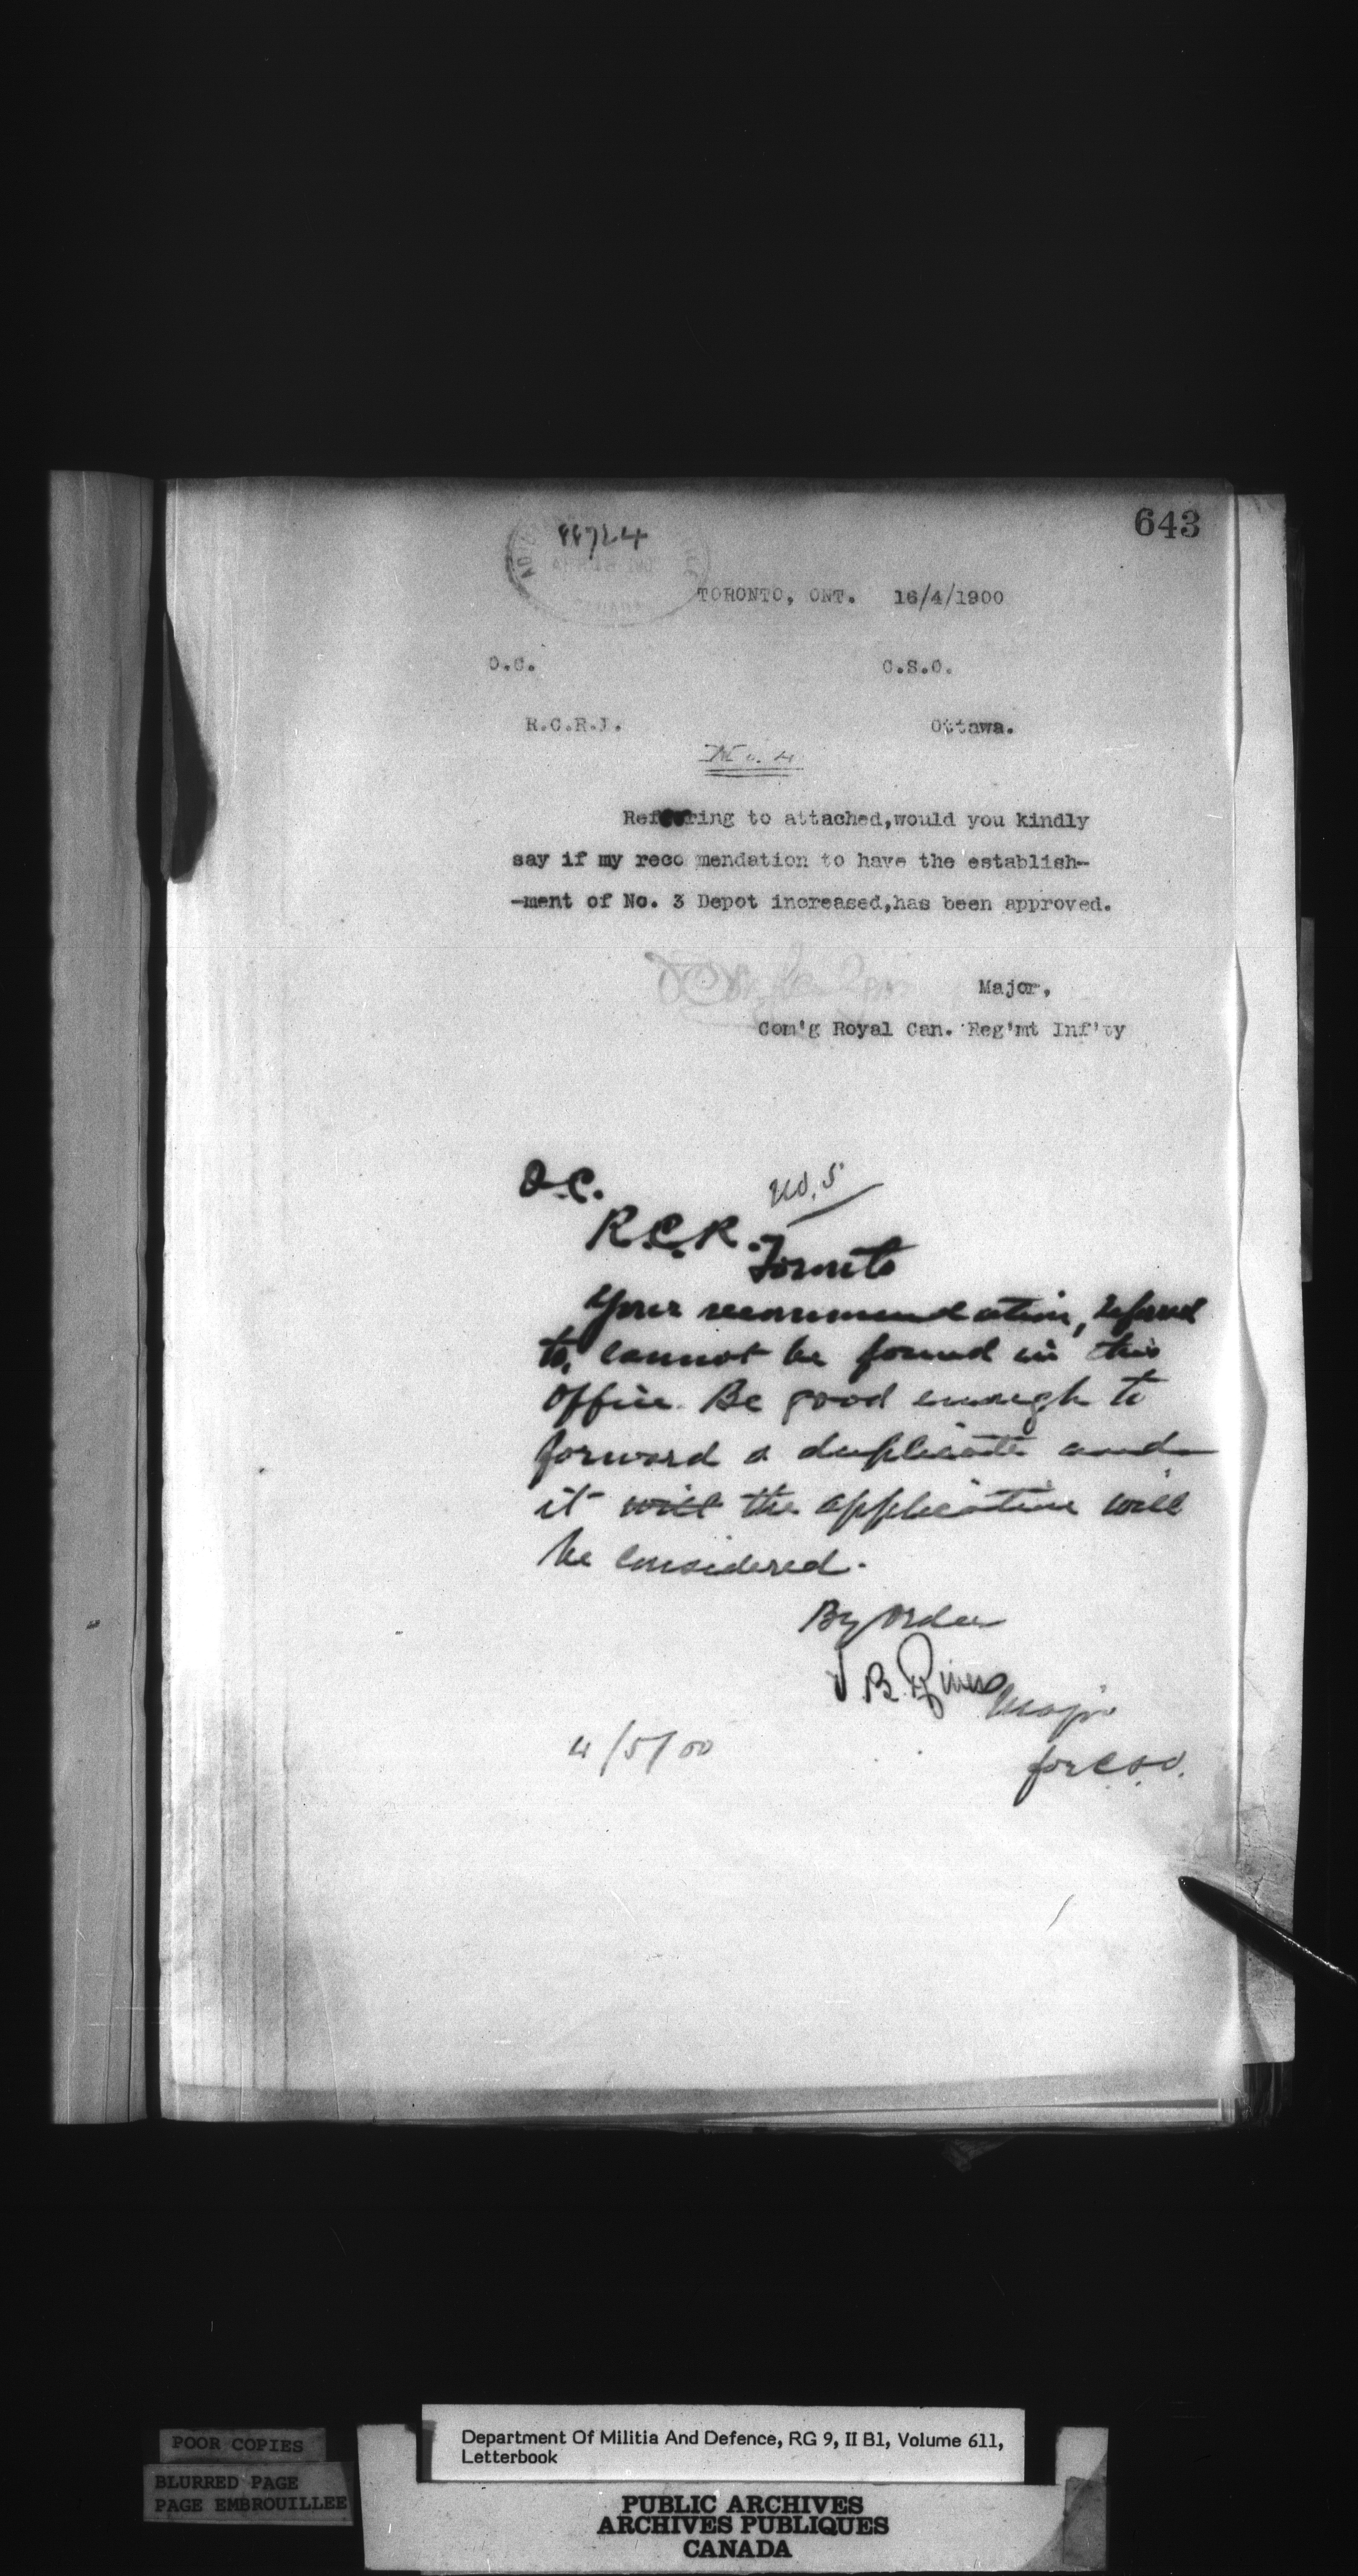 643
TORONTO, ONT. 16/4/1900
O.C. C.S.O.
R.C.R.I. Ottawa.
No. 4
Referring to attached,would you kindly
say if my reco mendation to have the establish-
-ment of No. 3 Depot increased,has been approved.
Major,
Com'g Royal Can. Reg'mt Inf'ty
O.C.
No. 5
R.C.R.
Toronto
Your recommendation, referred
to, cannot be found in this
office. Be good enough to
forward a duplicate and
it will the application will
be considered.
By order
J.B.
Major
for C.S.O.
4/5/00
POOR COPIES
BLURRED PAGE
PAGE EMBROUILLEE
Department Of Militia And Defence, RG 9, II B1, Volume 611,
Letterbook
PUBLIC ARCHIVES
ARCHIVES PUBLIQUES
CANADA